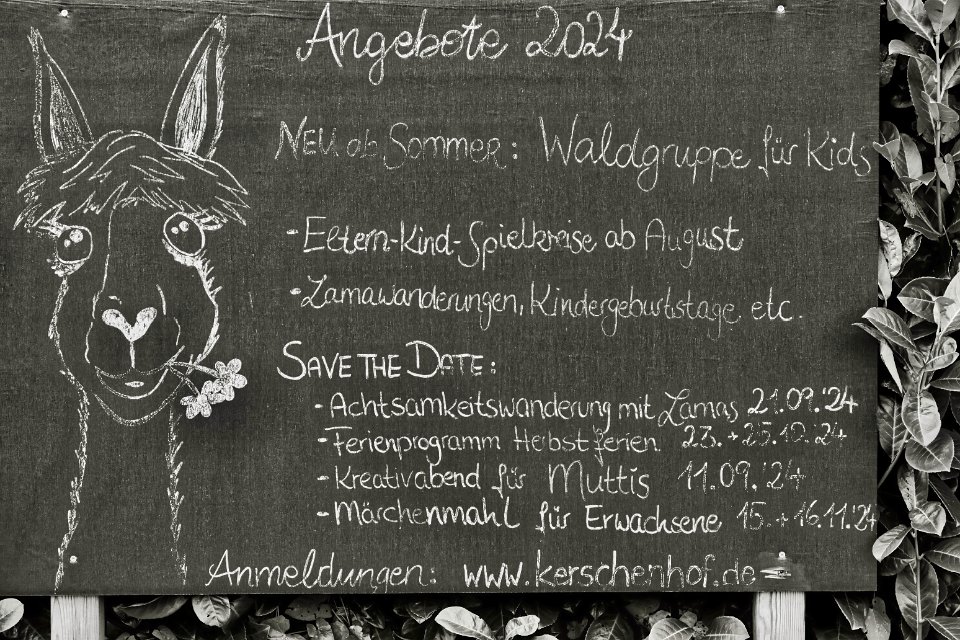 Angebote 2024
NEU ab Sommer: Waldgruppe für Kids
- Eltern-Kind-Spielkreise ab August
- Lamawanderungen, Kindergeburtstage etc.
SAVE THE DATE:
- Achtsamkeitswanderung mit Lamas 21.09.'24
- Ferienprogramm Herbstferien 23.+25.10.'24
- Kreativabend für Muttis 11.09.'24
- Märchenmahl für Erwachsene 15.+16.11.'24
Anmeldungen: www.kerschenhof.de